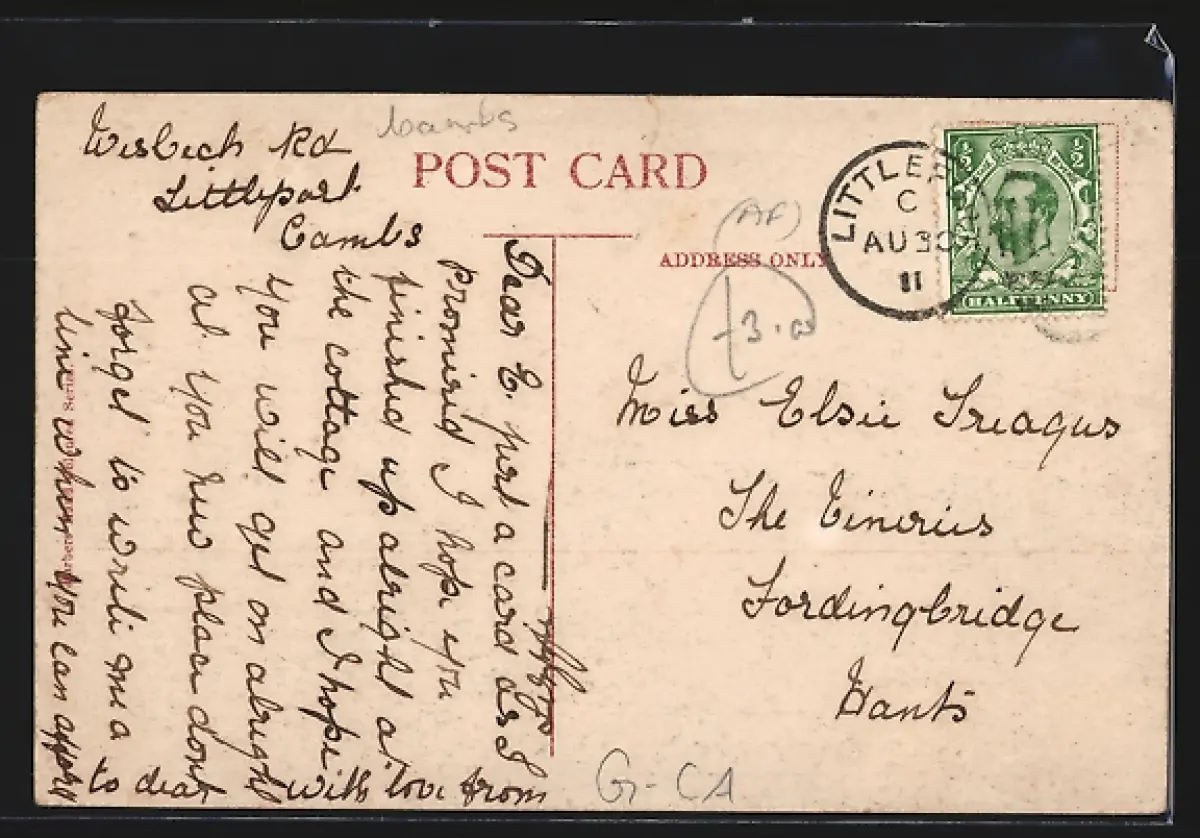 Wisbech Rd
Littleport
Cambs
Cambs
POST CARD
(AF)
ADDRESS ONLY
£3.00
LITTLEP
C
AU 30
11
½ ½
HALFPENNY
Dear E. just a card as I
promised I hope you
finished up alright at
the cottage and I hope
you will get on alright
at you new place dont
forget to write me a
line when you can afford
to dear with love from
Miss Elsie Treagus
The
Fordingbridge
Hants
G-CA